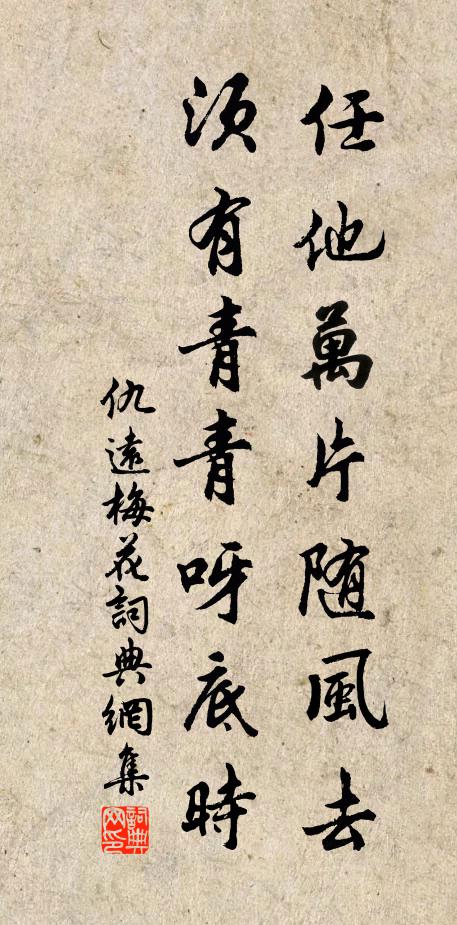 任他萬片随風去
須有青青呀底時
仇遠梅花詞典網集
詞典网印